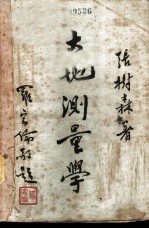 19526
張樹森著
大地測量學
羅家倫敬題